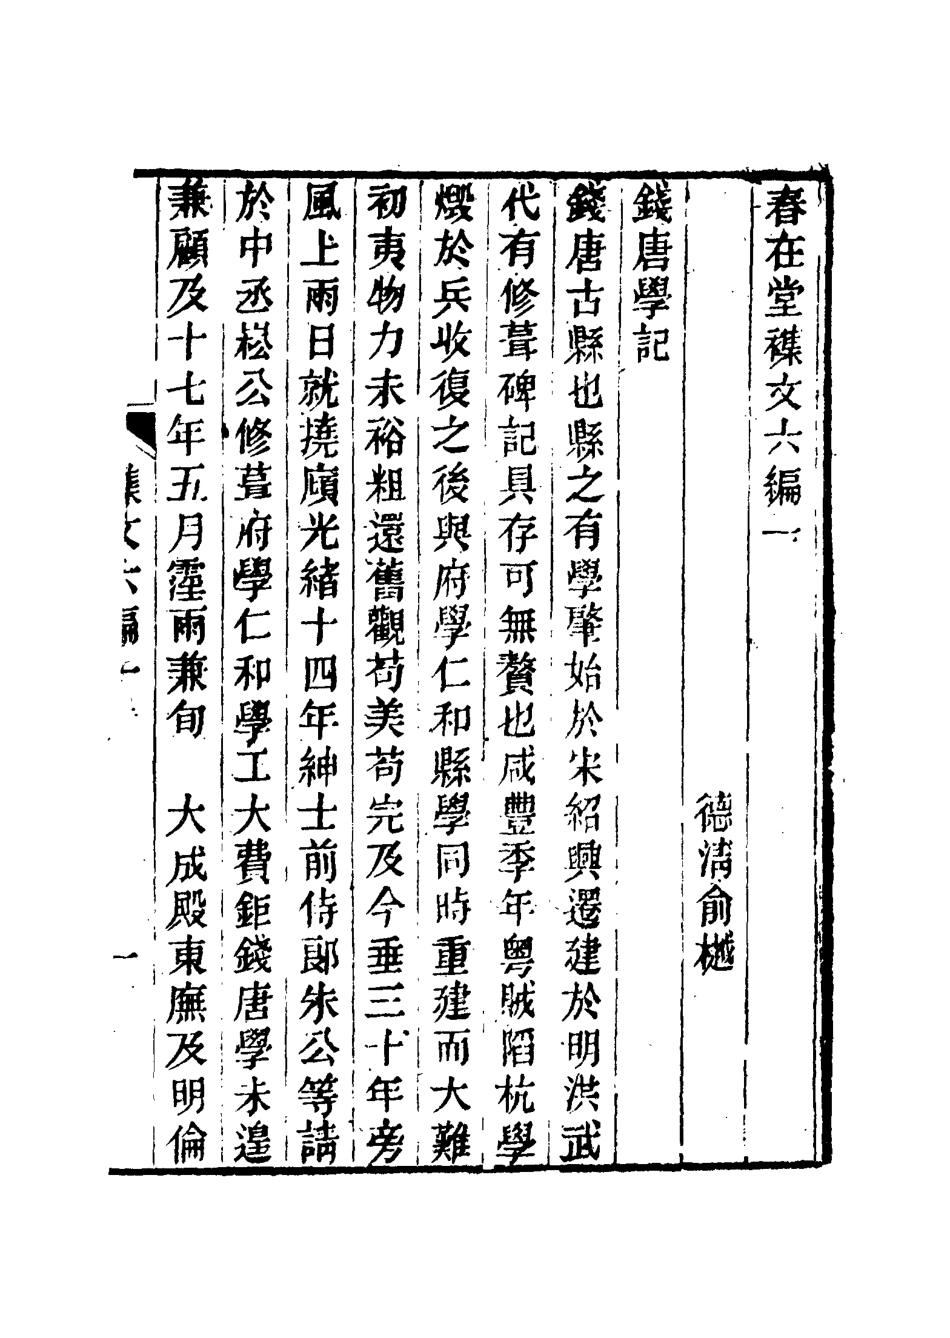 春在堂襍文六編一
德清俞樾
錢唐學記
錢唐古縣也縣之有學肇始於宋紹興遷建於明洪武
代有修葺碑記具存可無贅也咸豐季年粵賊陷杭學
燬於兵收復之後與府學仁和縣學同時重建而大難
初夷物力未裕粗還舊觀苟美苟完及今垂三十年旁
風上雨日就撓廎光緒十四年紳士前侍郎朱公等請
於中丞崧公修葺府學仁和學工大費鉅錢唐學未遑
兼顧及十七年五月霪雨兼旬　大成殿東廡及明倫
集文六編一
一